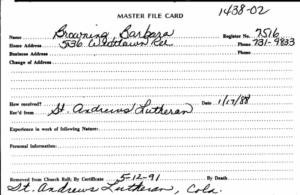 1438-02
MASTER FILE CARD
Name Browning Barbara Register No. 7516
Home Address 5236 Phone 731-9833
Business Address Phone
Change of Address
How received? Date 1/17/88
Rec'd from St. Andrews Lutheran
Experience in work of following Nature:
Personal Information:
Removed from Church Roll; By Certificate 5-12-91 By Death
St. Andrews Lutheran, Cola.